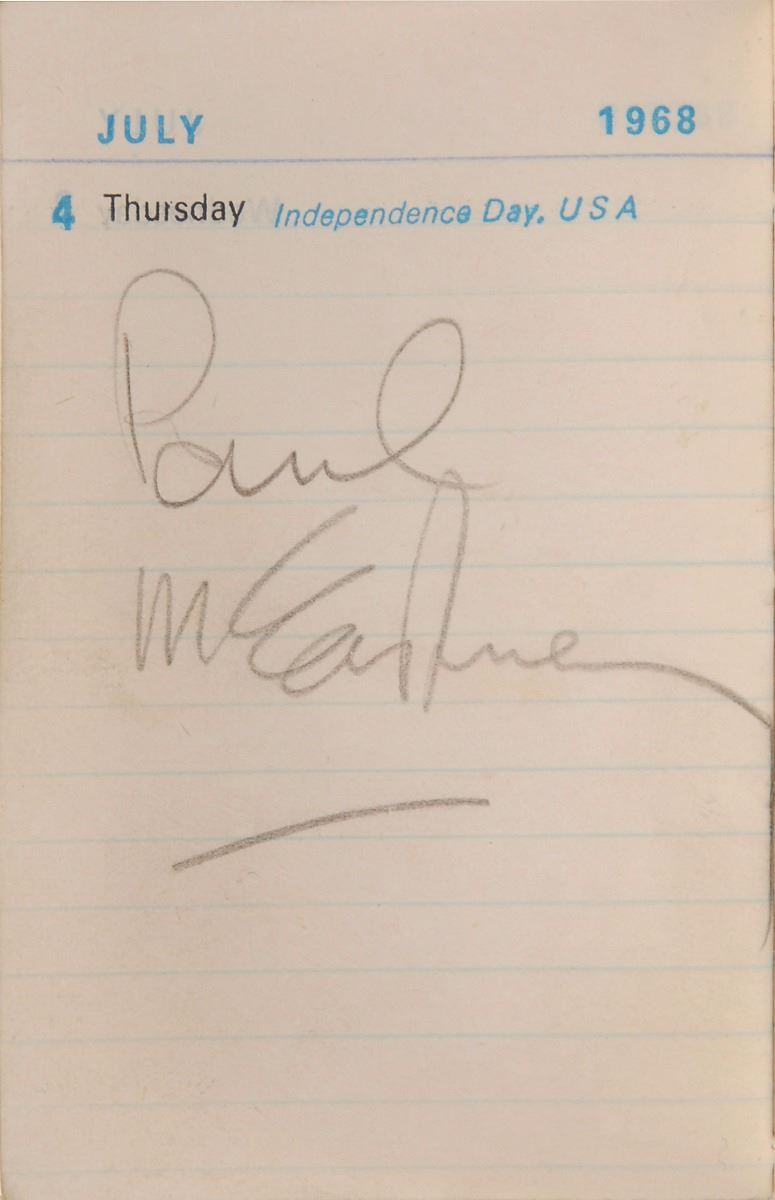 JULY 1968
4 Thursday Independence Day, USA
Paul
McCartney